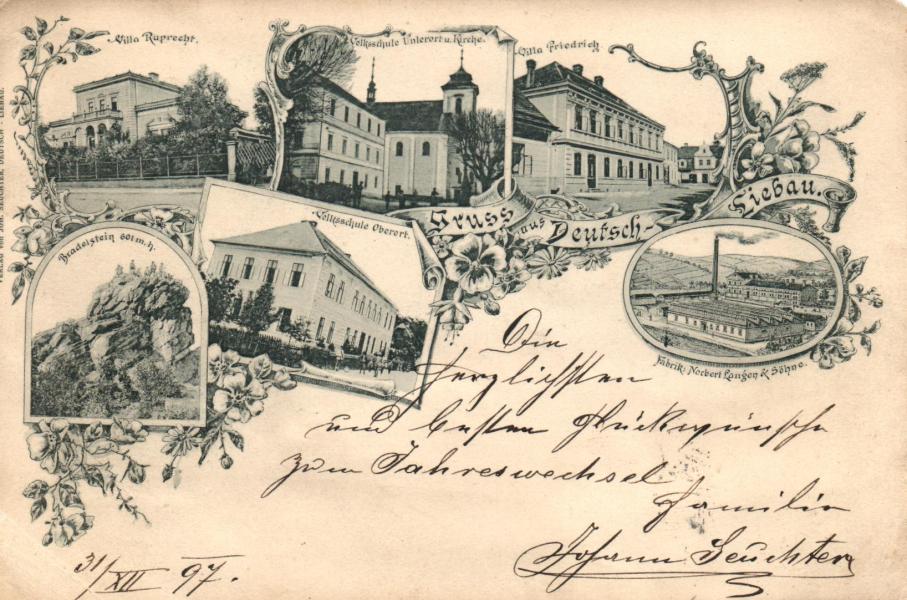 Villa Ruprecht.
Volksschule Unterort u. Kirche.
Villa Friedrich
Gruss aus Deutsch-Liebau.
Volksschule Oberort.
Bradelstein 601 m. h.
Fabrik: Norbert Langer & Söhne.
VERLAG von JOH. SEUCHTER, DEUTSCH-LIEBAU.
Die
herzlichsten
und besten Glückwünsche
zum Jahreswechsel
Familie
Johann Seuchter
31/XII 97.